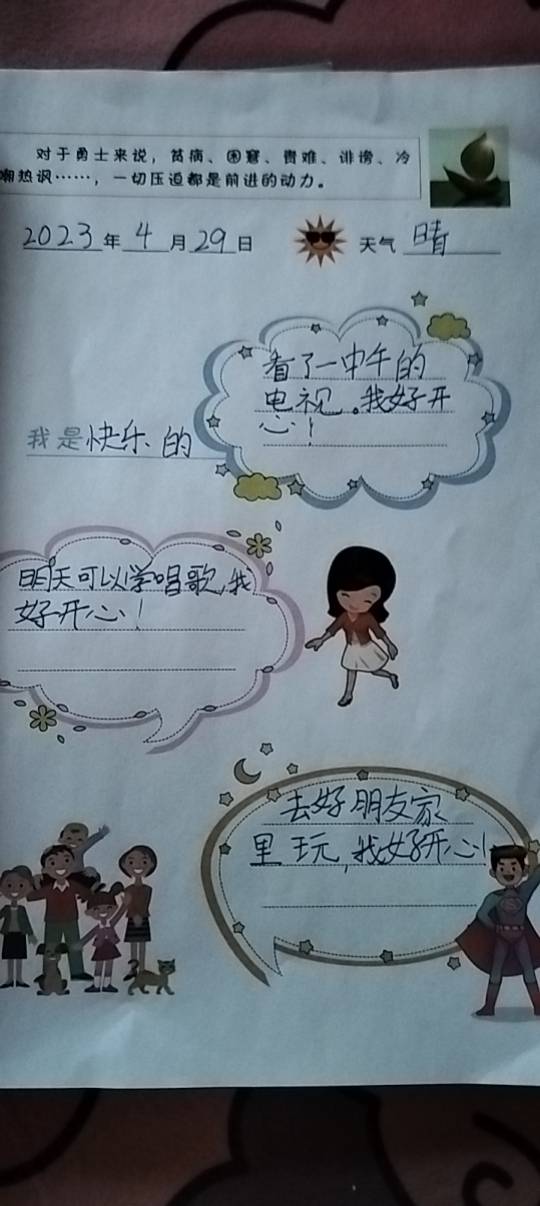 对于勇士来说，贫病、困窘、责难、诽谤、冷
嘲热讽……，一切压迫都是前进的动力。
2023年4月29日 天气 晴
看了一中午的
电视。我好开
心！
我是快乐的
明天可以学唱歌，我
好开心！
去好朋友家
里玩，我好开心！